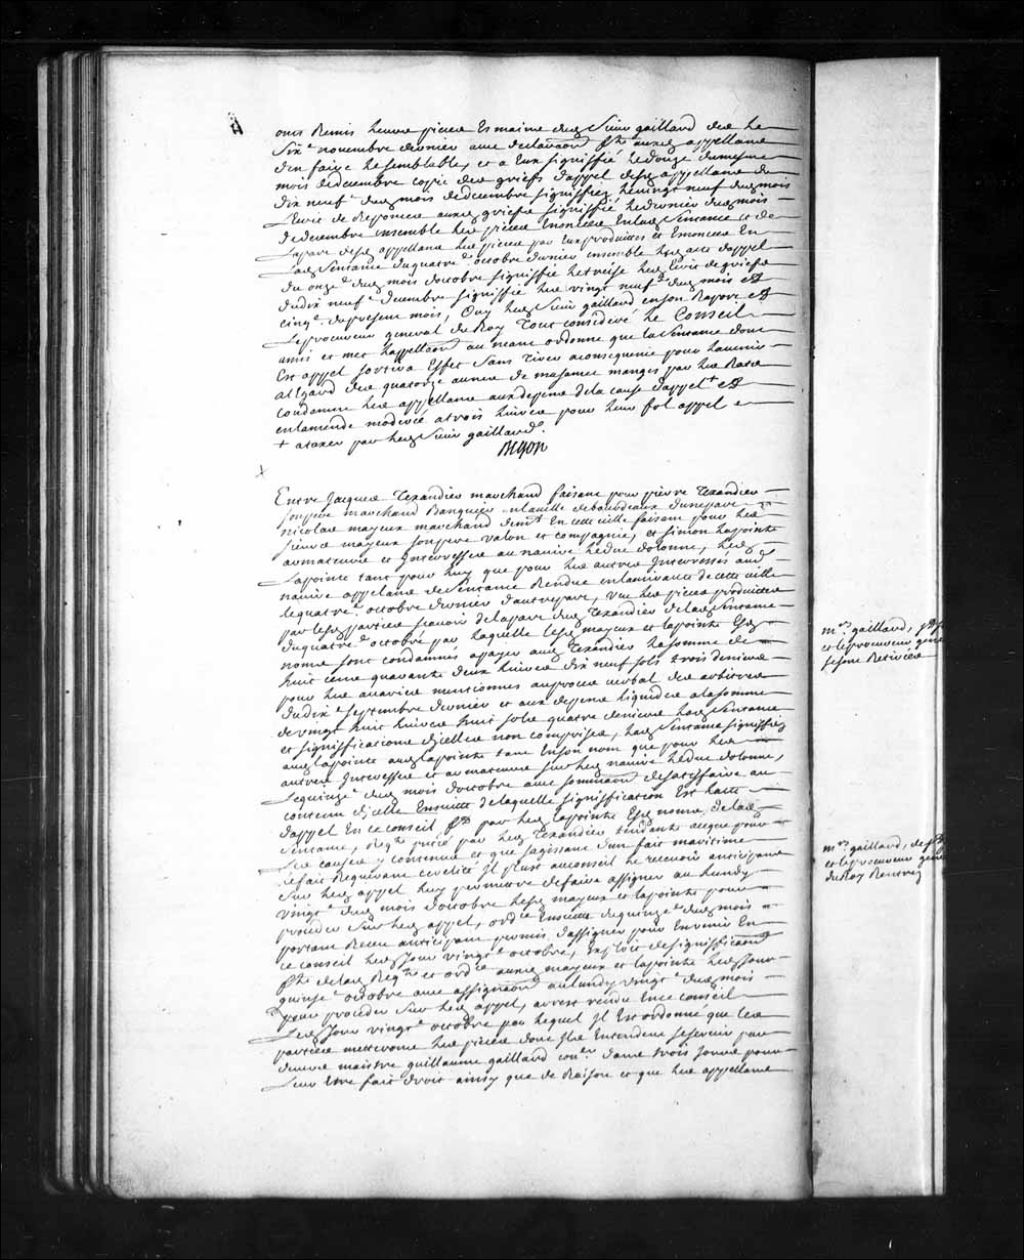 ont Remis leurs pieces Es mains dud. Sieur gaillard des le
Six.e novembre dernier avec declaraon. ausd. appellans
d'en faire le semblable, et a Eux signiffié le douze du mesme
mois de decembre copie des griefs d'appel desd. appellans du
dix neuf.e dud. mois de decembre signiffiez le vingt neuf dud. mois
Ecrit de Reponses ausd. griefs signiffié le dernier dud. mois
de decembre ensemble les pieces Enoncées En lad. Sentence et de
la part desd. appellans les pieces par Eux produittes et Enoncées En
lad. Sentence du quatre.e octobre dernier ensemble led. acte d'appel
du onze.e dud. mois d'octobre signiffié le treize led. Ecrit de griefs
du dix neuf.e decembre signiffié le vingt neuf.e dud. mois et
cinq.e du present mois, Ouy led. Sieur gaillard en son Raport et
le procureur general du Roy Tout consideré Le Conseil
a mis et met l'appellaon. au neant ordonne que la Sentence dont
Est appel sortira Effet Sans tirer a consequence pour l'avenir
a l'Egard des quatorze aunes de mazamet mangés par les Rats
condamne les appellans aux depens de la cause d'appel + et
en l'amende moderée a trois livres pour leur fol appel
+ a taxer par led. Sieur gaillard.
Begon
Entre Jacques Texandier marchand faisant pour pierre Texandier
son pere marchand Banquier en la ville de bourdeaux d'une part
nicolas mayeux marchand dem.t En cette ville faisant pour les
Sieurs mayeux son pere Valon et compagnie, et simon lapointe
armateurs et Interressés au navire le duc d'olonne, led.
lapointe tant pour luy que pour les autres Interressés aud.
navire appelans de Sentence Rendue en l'amirauté de cette ville
le quatre.e octobre dernier d'autre part, Veu les pieces produittes
par lesd. parties scavoir de la part dud. Texandier de lad. Sentence
du quatre.e octobre par laquelle lesd. mayeux et lapointe Esd.
noms sont condamnés a payer aud. Texandier la somme de
huit cens quarante deux livres dix neuf sols trois deniers
pour les avaries mentionnés au procés verbal des arbitres
du dix.e septembre dernier et aux depens liquidés a la somme
de vingt huit livres huit sols quatre deniers lad. Sentence
et significations d'icelles non comprises, lad. Sentence signiffiée
aud. lapointe aud. lapointe tant En son nom que pour les
autres Interressés et armateurs sur led. navire le duc d'olonne,
le quinze.e dud. mois d'octobre avec sommaon. de satisfaire au
contenu d'icelle Ensuitte de laquelle signification Est l'acte
d'appel En ce conseil par led. lapointe Esd. noms de lad.
Sentence, Req.te par led. Texandier tendante a ce que pour
les causes y contenues et que s'agissant d'un fait maritime
et fait Requerant celerité Il plust au conseil le recevoir anticipant
sur led. appel luy permettre de faire assigner au lundy
vingt.e dud. mois d'octobre lesd. mayeux et lapointe pour
proceder sur led. appel, ord.ce Ensuitte du quinze.e dud. mois
portant Receu anticipant permis d'assigner pour En venir En
ce conseil led. Jour vingt.e octobre, Exploit de signification
de lad. Req.te et ord.ce ausd. mayeux et lapointe led. Jour
quinze.e octobre avec assignaon. au lundy vingt.e dud. mois
pour proceder sur led. appel, arrest rendu En ce conseil
led. Jour vingt.e octobre par lequel Il Est ordonné que les
parties mettront les pieces dont Ils Entendent se servir par
devers maistre guillaume gaillard con.er dans trois jours pour
leur Etre fait droit ainsy que de Raison et que les appellans
m.rs gaillard,
et le procureur gene
se sont Retirés
m.rs gaillard,
et le procureur gene
du Roy Rentrez